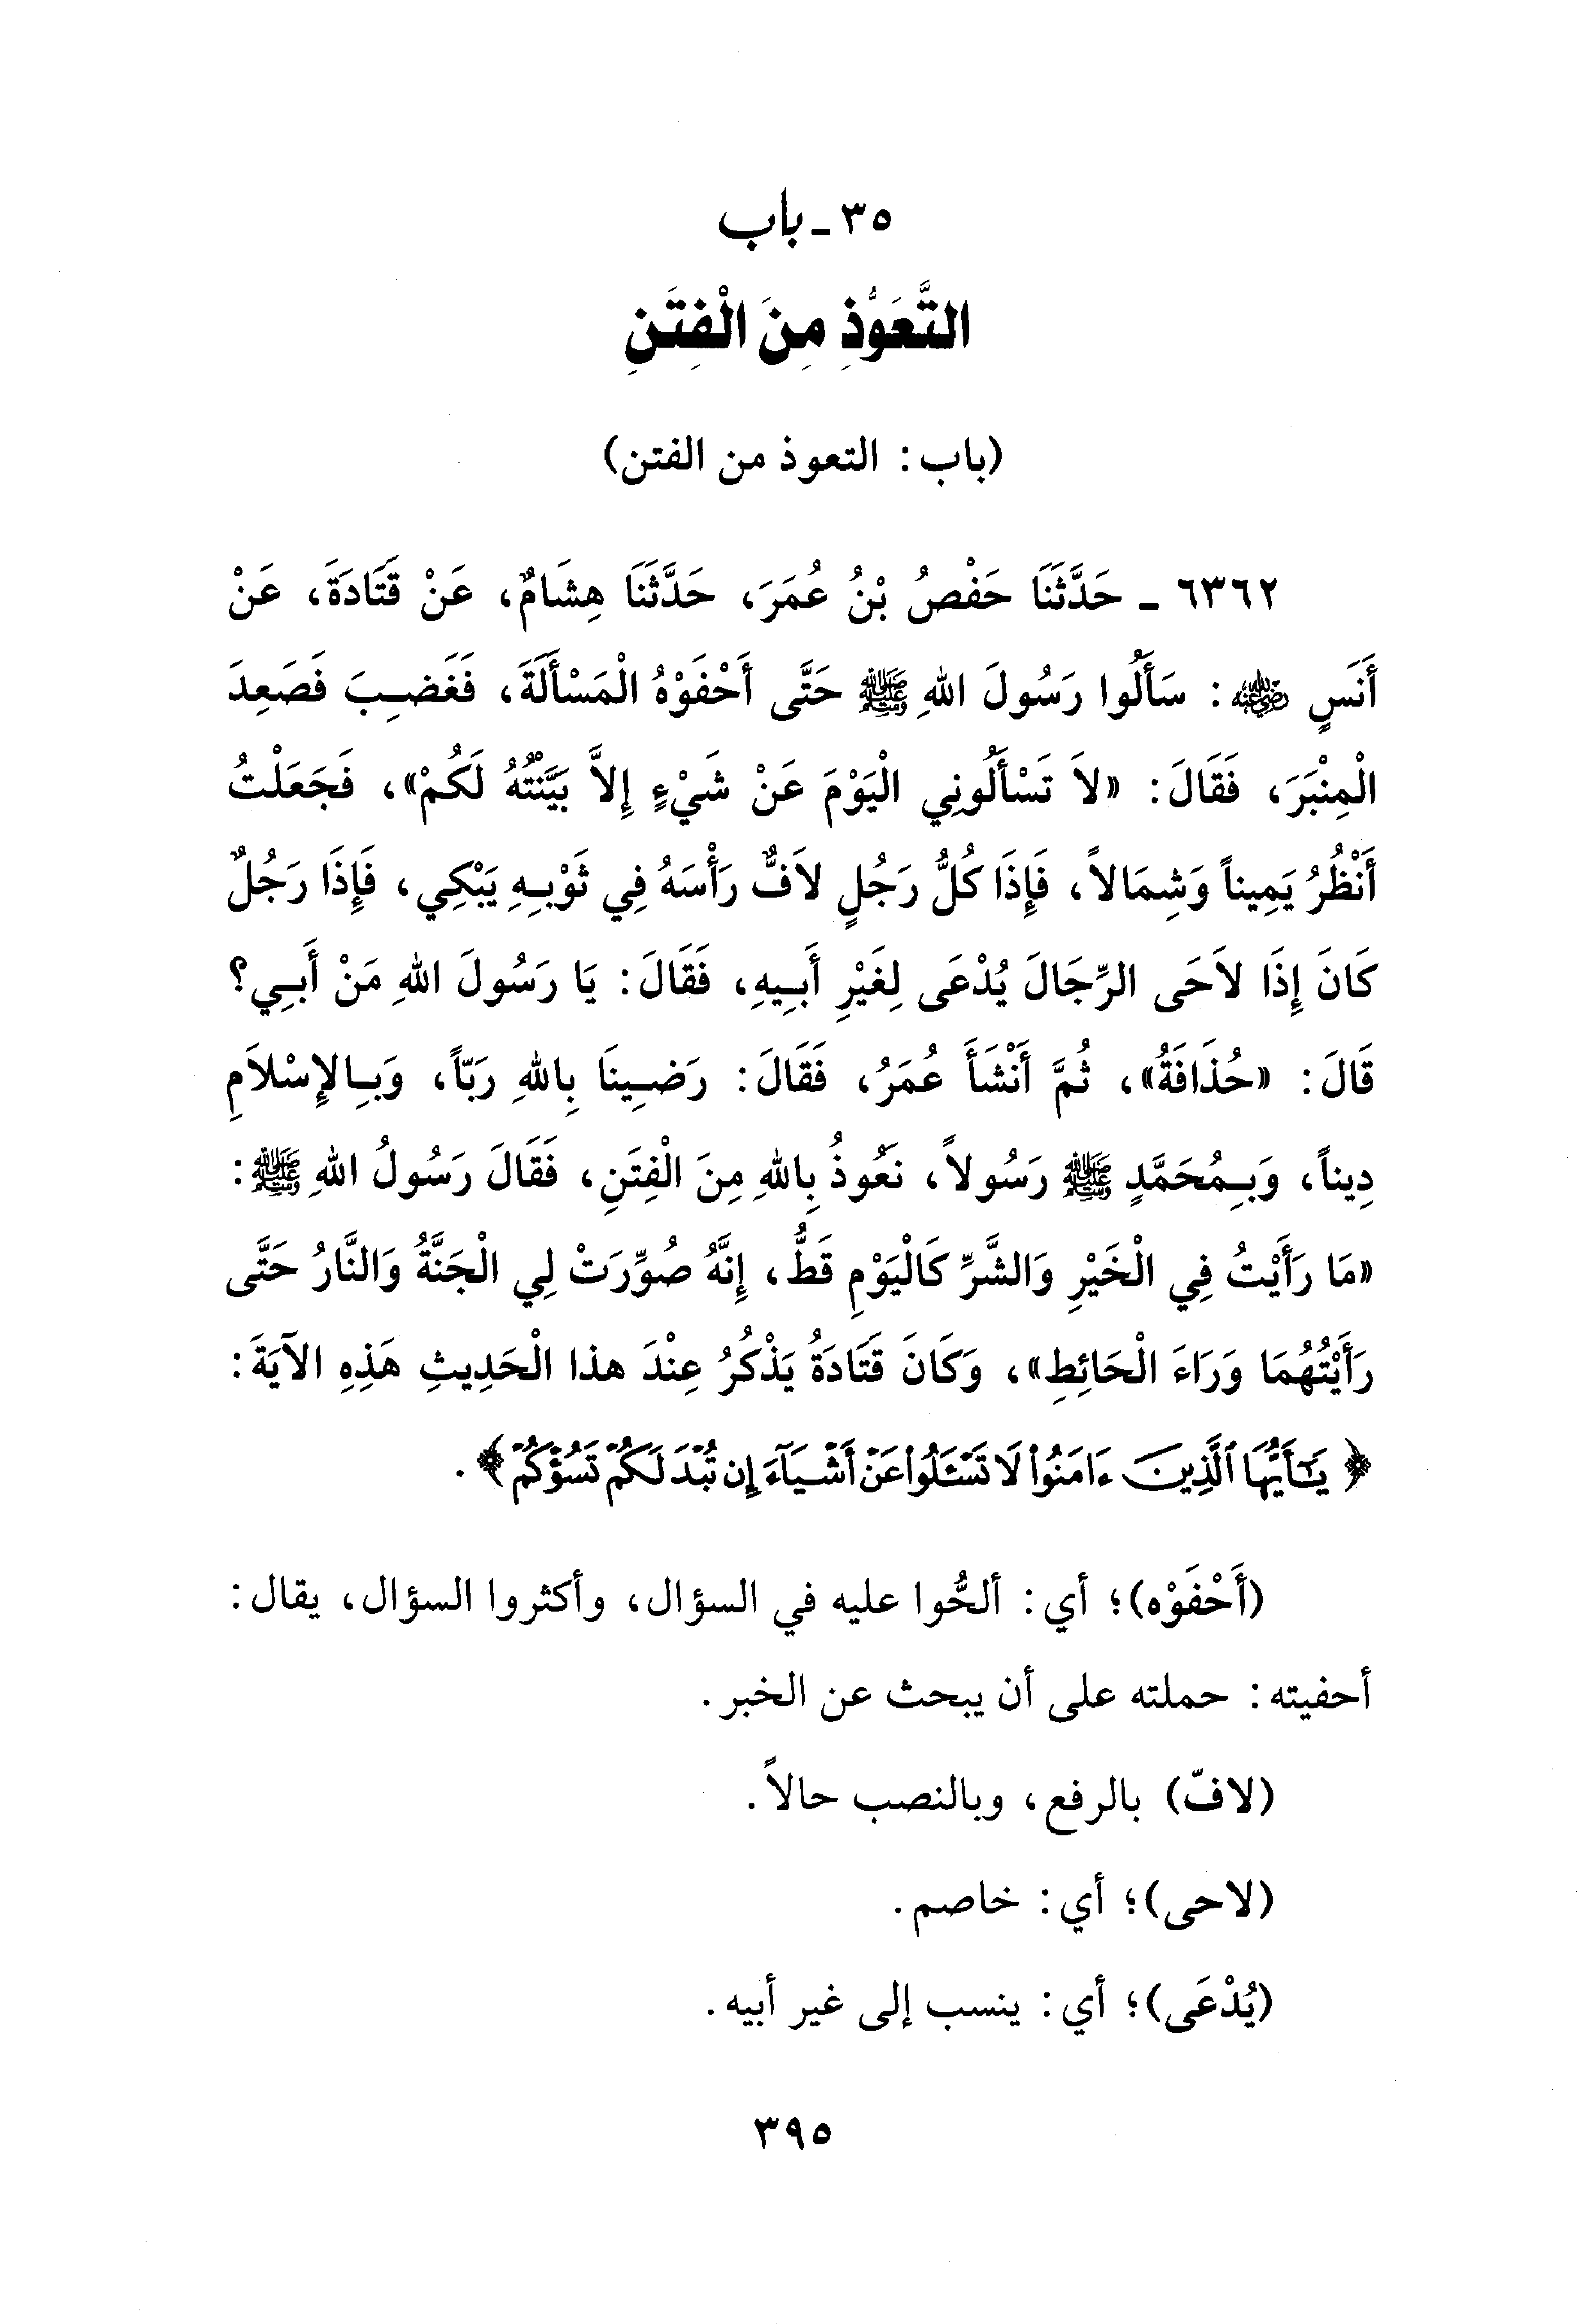 ٣٥ - باب
التَّعَوُّذِ مِنَ الْفِتَنِ
(باب: التعوذ من الفتن)
٦٣٦٢ - حَدَّثَنَا حَفْصُ بْنُ عُمَرَ، حَدَّثَنَا هِشَامٌ، عَنْ قَتَادَةَ، عَنْ
أَنَسٍ ﵁: سَأَلُوا رَسُولَ اللهِ ﷺ حَتَّى أَحْفَوْهُ الْمَسْأَلَةَ، فَغَضِبَ فَصَعِدَ
الْمِنْبَرَ، فَقَالَ: «لاَ تَسْأَلُونِي الْيَوْمَ عَنْ شَيْءٍ إِلاَّ بَيَّنْتُهُ لَكُمْ»، فَجَعَلْتُ
أَنْظُرُ يَمِيناً وَشِمَالاً، فَإِذَا كُلُّ رَجُلٍ لاَفٌّ رَأْسَهُ فِي ثَوْبِهِ يَبْكِي، فَإِذَا رَجُلٌ
كَانَ إِذَا لاَحَى الرِّجَالَ يُدْعَى لِغَيْرِ أَبِيهِ، فَقَالَ: يَا رَسُولَ اللهِ مَنْ أَبِي؟
قَالَ: «حُذَافَةُ»، ثُمَّ أَنْشَأَ عُمَرُ، فَقَالَ: رَضِينَا بِاللهِ رَبّاً، وَبِالإِسْلاَمِ
دِيناً، وَبِمُحَمَّدٍ ﷺ رَسُولاً، نَعُوذُ بِاللهِ مِنَ الْفِتَنِ، فَقَالَ رَسُولُ اللهِ ﷺ:
«مَا رَأَيْتُ فِي الْخَيْرِ وَالشَّرِّ كَالْيَوْمِ قَطُّ، إِنَّهُ صُوِّرَتْ لِي الْجَنَّةُ وَالنَّارُ حَتَّى
رَأَيْتُهُمَا وَرَاءَ الْحَائِطِ»، وَكَانَ قَتَادَةُ يَذْكُرُ عِنْدَ هذا الْحَدِيثِ هَذِهِ الآيَةَ:
﴿يَٰٓأَيُّهَا ٱلَّذِينَ ءَامَنُوا۟ لَا تَسْـَٔلُوا۟ عَنْ أَشْيَآءَ إِن تُبْدَ لَكُمْ تَسُؤْكُمْ﴾.
(أَحْفَوْه)؛ أي: ألحُّوا عليه في السؤال، وأكثروا السؤال، يقال:
أحفيته: حملته على أن يبحث عن الخبر.
(لافّ) بالرفع، وبالنصب حالاً.
(لاحى)؛ أي: خاصم.
(يُدْعَى)؛ أي: ينسب إلى غير أبيه.
٣٩٥